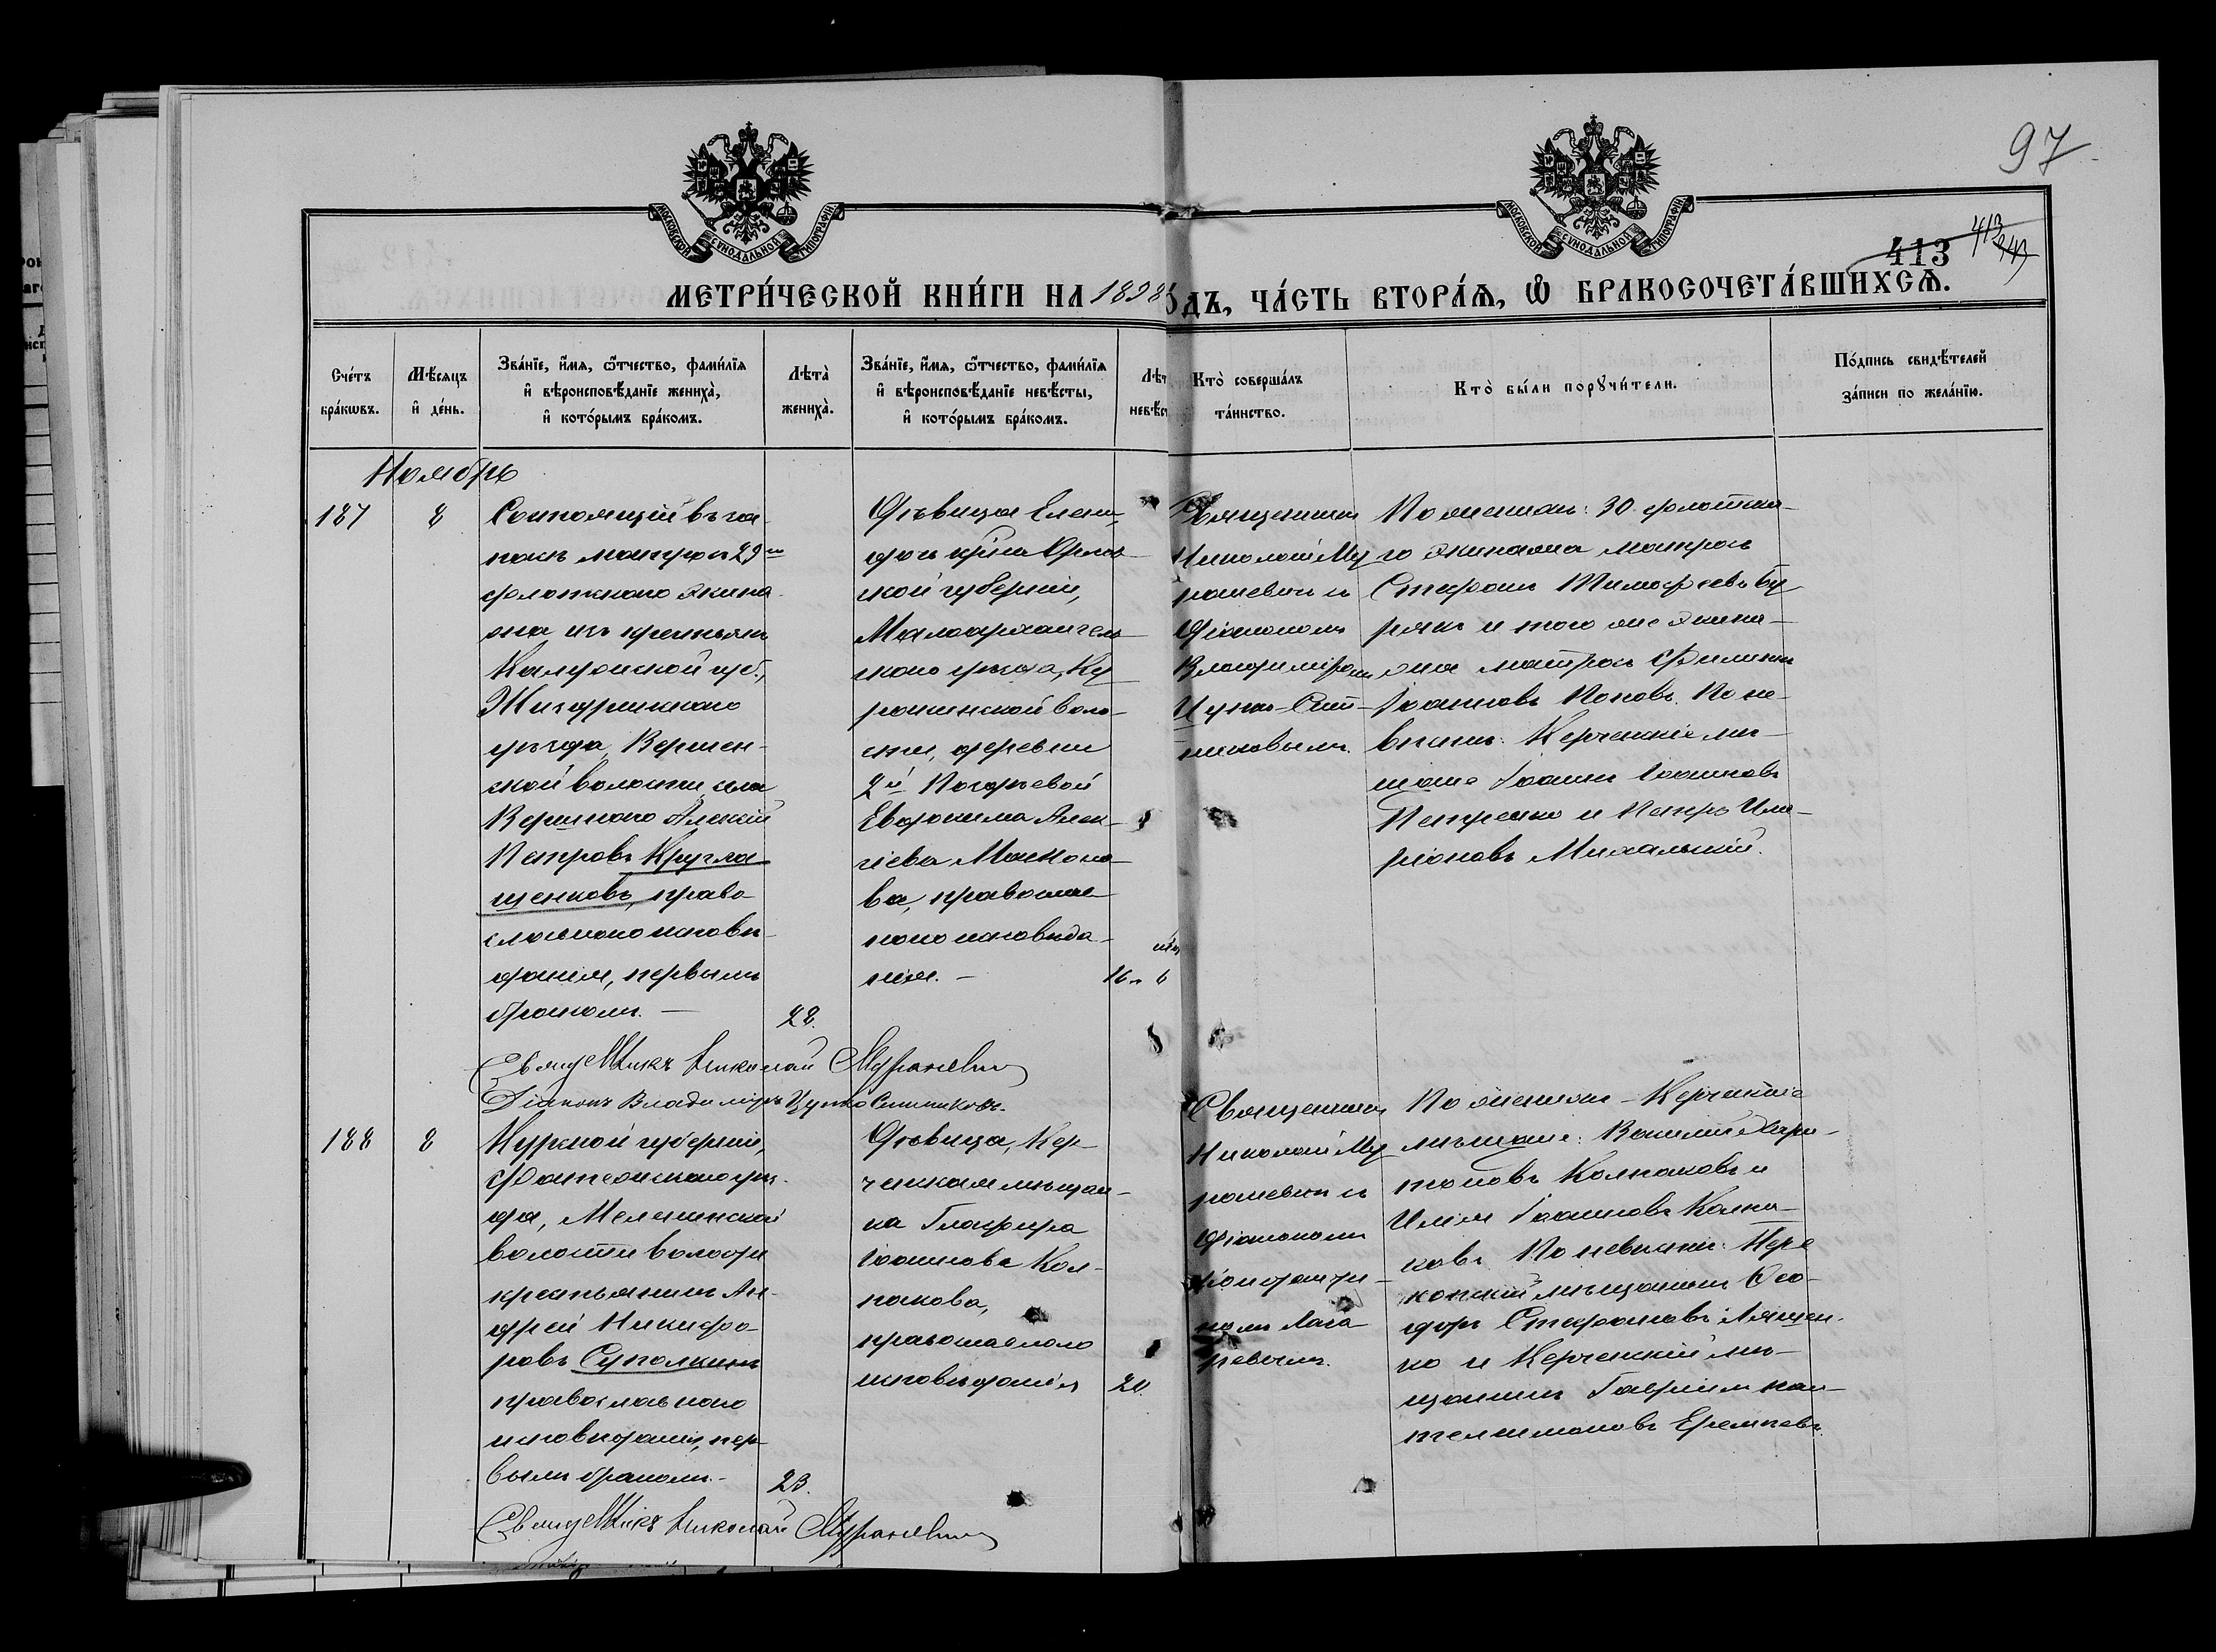 97
413
МЕТРИЧЕСКОЙ КНИГИ НА 1898 ОДЪ, ЧАСТЬ ВТОРАЯ, Ѿ БРАКОСОЧЕТАВШИХСЯ.
МОСКОВСКОЙ СУНОДАЛЬНОЙ ТИПОГРАФІИ
МОСКОВСКОЙ СУНОДАЛЬНОЙ ТИПОГРАФІИ
Счетъ
браковъ.
Мѣсяцъ
и день.
Званіе, имя, отчество, фамилія
и вѣроисповѣданіе жениха,
и которымъ бракомъ.
Лѣта
жениха.
Званіе, имя, отчество, фамилія
и вѣроисповѣданіе невѣсты,
и которымъ бракомъ.
Лѣт
невѣст
Кто совершалъ
таинство.
Кто были поручители.
Подпись свидѣтелей
записи по желанію.
Ноябрь
187
8
Состоящій въ за-
пасѣ матросъ 29го
флотскаго экипа-
жа, изъ крестьянъ
Калужской губ.,
Жиздринскаго
уѣзда,
ской волости, села
Алексій
Петровъ Кругла-
щенковъ, право-
славнаго исповѣ-
данія, первымъ
бракомъ. —
28.
Дѣвица
дочь кр-на Орлов-
ской губерніи,
Малоархангель-
скаго уѣзда, Ку-
ракинской воло-
сти, деревни
2й
Евдокима Алек-
сіева
ва, православ-
наго исповѣда-
нія. —
16
Священникъ
Николай Му-
рашевичъ и
Діакономъ
Владиміромъ
Цунко-Сит-
никовымъ.
По женихѣ: 30 флотска-
го экипажа матросъ
Стефанъ Тимофеевъ Бу-
рякъ и того же экипа-
жа матросъ Филиппъ
Іоанновъ Поповъ. По не-
вѣстѣ: Керченскіе мѣ-
щане Іоаннъ Іоанновъ
Петренко и Петръ Ила-
ріоновъ Михальскій.
Священникъ Николай Мурашевичъ
Діаконъ Владиміръ Цунко Ситниковъ.
188
8
Курской губерніи,
Фатежскаго уѣз-
да,
волости
крестьянинъ Ан-
дрей Никифо-
ровъ Суполкинъ
православнаго
исповѣданія, пер-
вымъ бракомъ. —
23.
Дѣвица, Кер-
ченская мѣщан-
ка Глафира
Іоаннова Кол-
пакова,
православнаго
исповѣданія
20.
Священникъ
Николай Му-
рашевичъ и
Діакономъ
По женихѣ — Керченскіе
мѣщане: Василій Хари-
тоновъ Колпаковъ и
Илія Іоанновъ Колпа-
ковъ. По невѣстѣ: Пере-
копскій мѣщанинъ Ѳео-
доръ Стефановъ Лящен-
ко и Керченскій мѣ-
щанинъ Гавріилъ Пан-
телеимоновъ Еремѣевъ.
Священникъ Николай Мурашевичъ